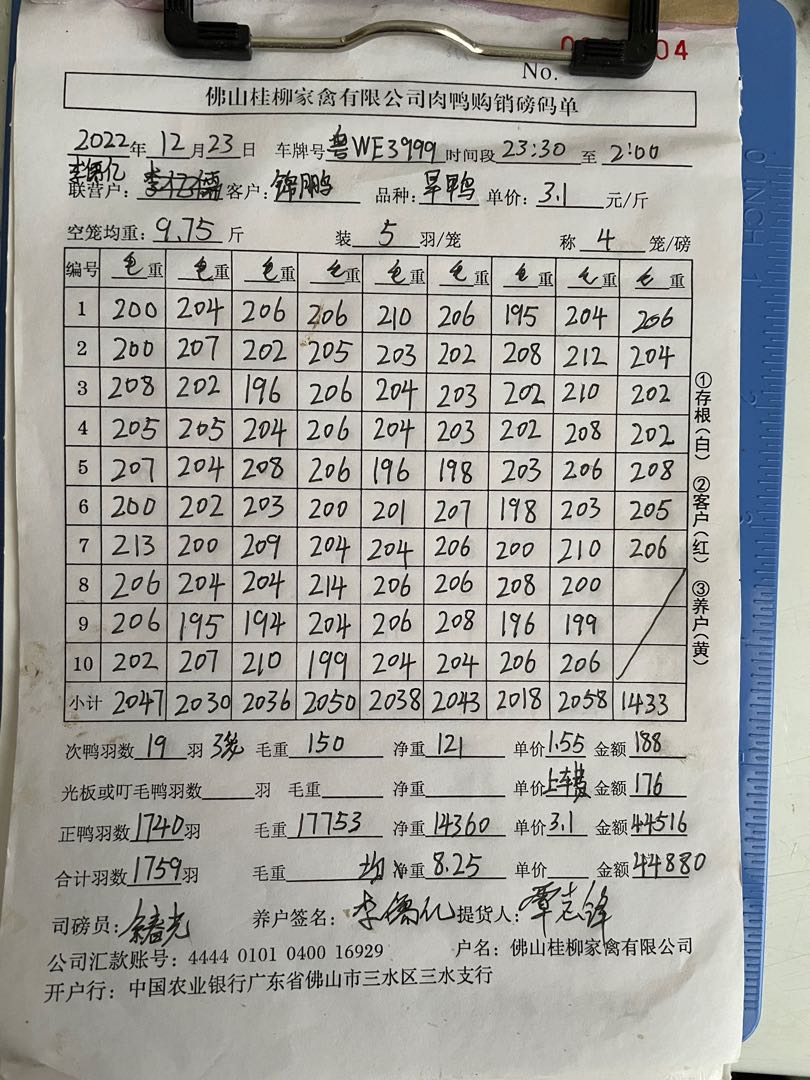 04
No.
佛山桂柳家禽有限公司肉鸭购销磅码单
2022年 12月23日 车牌号 鲁WE3999 时间段 23:30 至 2:00
李儒亿
联营户: 李亿儒 客户: 锦鹏 品种: 旱鸭 单价: 3.1 元/斤
空笼均重: 9.75 斤 装 5 羽/笼 称 4 笼/磅
编号 毛重 毛重 毛重 毛重 毛重 毛重 毛重 毛重 毛重
1 200 204 206 206 210 206 195 204 206
2 200 207 202 205 203 202 208 212 204
3 208 202 196 206 204 203 202 210 202
4 205 205 204 206 204 203 202 208 202
5 207 204 208 206 196 198 203 206 208
6 200 202 203 200 201 207 198 203 205
7 213 200 209 204 204 206 200 210 206
8 206 204 204 214 206 206 208 200
9 206 195 194 204 206 208 196 199
10 202 207 210 199 204 204 206 206
小计 2047 2030 2036 2050 2038 2043 2018 2058 1433
次鸭羽数 19 羽 3笼 毛重 150 净重 121 单价 1.55 金额 188
光板或叮毛鸭羽数 羽 毛重 净重 单价 上车费 金额 176
正鸭羽数 1740 羽 毛重 17753 净重 14360 单价 3.1 金额 44516
合计羽数 1759 羽 毛重 均 净重 8.25 单价 金额 44880
司磅员: 养户签名: 李儒亿 提货人: 覃志锋
公司汇款账号: 4444 0101 0400 16929 户名: 佛山桂柳家禽有限公司
开户行: 中国农业银行广东省佛山市三水区三水支行
①存根(白) ②客户(红) ③养户(黄)
INCH